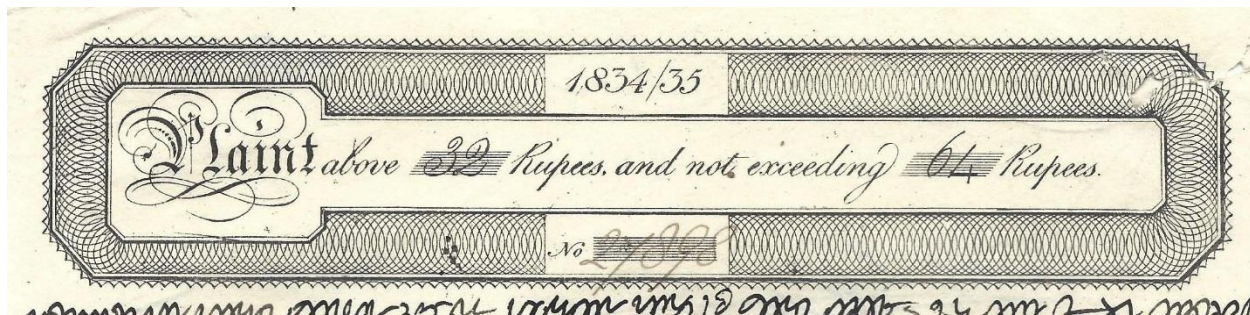 1834/35
Plaint above 32 Rupees. and not exceeding 64 Rupees.
No 27898